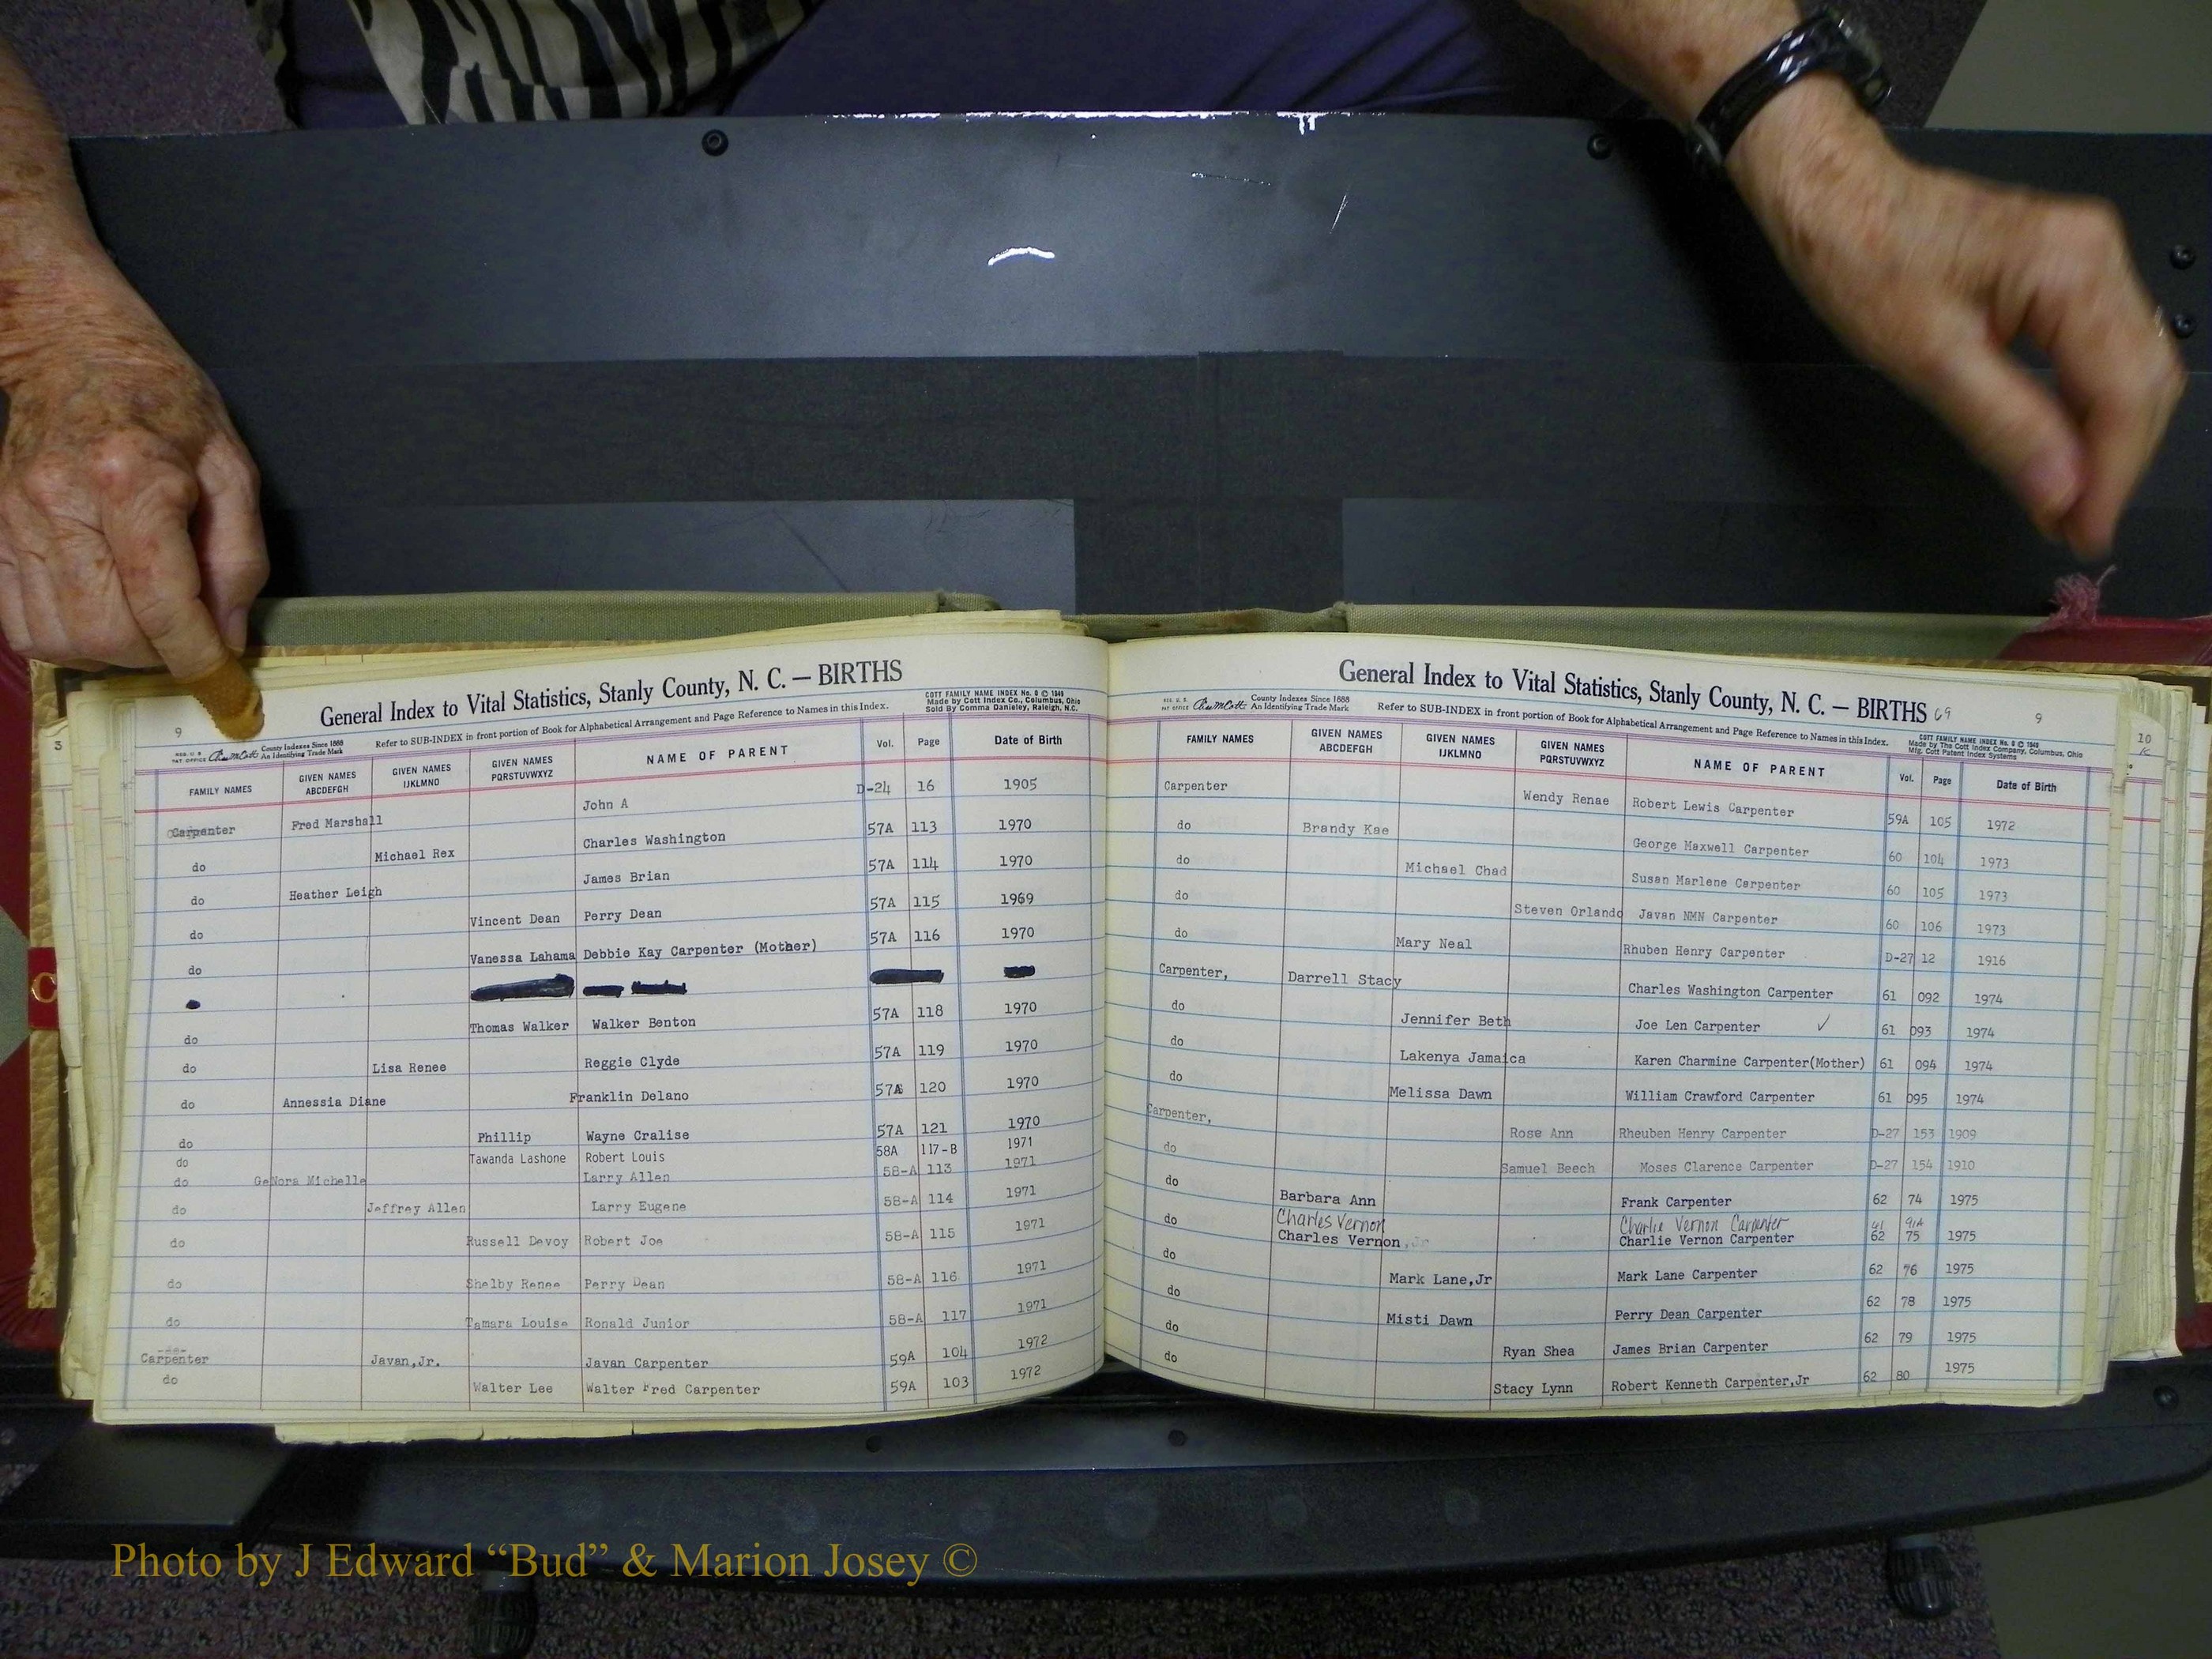 General Index to Vital Statistics, Stanly County, N. C. — BIRTHS
9
COTT FAMILY NAME INDEX No. 0 © 1949
Made by Cott Index Co., Columbus, Ohio
Sold By Comma Danieley, Raleigh, N.C.
REG. U. S. PAT OFFICE County Indexes Since 1888 An Identifying Trade Mark
Refer to SUB-INDEX in front portion of Book for Alphabetical Arrangement and Page Reference to Names in this Index.
FAMILY NAMES GIVEN NAMES ABCDEFGH GIVEN NAMES IJKLMNO GIVEN NAMES PQRSTUVWXYZ NAME OF PARENT Vol. Page Date of Birth
Carpenter Fred Marshall John A D-24 16 1905
do Michael Rex Charles Washington 57A 113 1970
do Heather Leigh James Brian 57A 114 1970
do Vincent Dean Perry Dean 57A 115 1969
do Vanessa Lahama Debbie Kay Carpenter (Mother) 57A 116 1970
do Thomas Walker Walker Benton 57A 118 1970
do Lisa Renee Reggie Clyde 57A 119 1970
do Annessia Diane Franklin Delano 57A 120 1970
do Phillip Wayne Cralise 57A 121 1970
do Tawanda Lashone Robert Louis 58A 117-B 1971
do GeNora Michelle Larry Allen 58-A 113 1971
do Jeffrey Allen Larry Eugene 58-A 114 1971
do Russell Devoy Robert Joe 58-A 115 1971
do Shelby Renee Perry Dean 58-A 116 1971
do Tamara Louise Ronald Junior 58-A 117 1971
Carpenter Javan,Jr. Javan Carpenter 59A 104 1972
do Walter Lee Walter Fred Carpenter 59A 103 1972
General Index to Vital Statistics, Stanly County, N. C. — BIRTHS 69
9
REG. U. S. PAT OFFICE County Indexes Since 1888 An Identifying Trade Mark
Refer to SUB-INDEX in front portion of Book for Alphabetical Arrangement and Page Reference to Names in this Index.
COTT FAMILY NAME INDEX No. 0 © 1949
Made by The Cott Index Company, Columbus, Ohio
Mfg. Cott Patent Index Systems
FAMILY NAMES GIVEN NAMES ABCDEFGH GIVEN NAMES IJKLMNO GIVEN NAMES PQRSTUVWXYZ NAME OF PARENT Vol. Page Date of Birth
Carpenter Wendy Renae Robert Lewis Carpenter 59A 105 1972
do Brandy Kae George Maxwell Carpenter 60 104 1973
do Michael Chad Susan Marlene Carpenter 60 105 1973
do Steven Orlando Javan NMN Carpenter 60 106 1973
do Mary Neal Rhuben Henry Carpenter D-27 12 1916
Carpenter, Darrell Stacy Charles Washington Carpenter 61 092 1974
do Jennifer Beth Joe Len Carpenter ✓ 61 093 1974
do Lakenya Jamaica Karen Charmine Carpenter(Mother) 61 094 1974
do Melissa Dawn William Crawford Carpenter 61 095 1974
Carpenter, Rose Ann Rheuben Henry Carpenter D-27 153 1909
do Samuel Beech Moses Clarence Carpenter D-27 154 1910
do Barbara Ann Frank Carpenter 62 74 1975
Charles Vernon Charlie Vernon Carpenter 61 91A
do Charles Vernon, Jr Charlie Vernon Carpenter 62 75 1975
do Mark Lane,Jr Mark Lane Carpenter 62 76 1975
do Misti Dawn Perry Dean Carpenter 62 78 1975
do Ryan Shea James Brian Carpenter 62 79 1975
do Stacy Lynn Robert Kenneth Carpenter,Jr 62 80 1975
3
10
C
Photo by J Edward “Bud” & Marion Josey ©